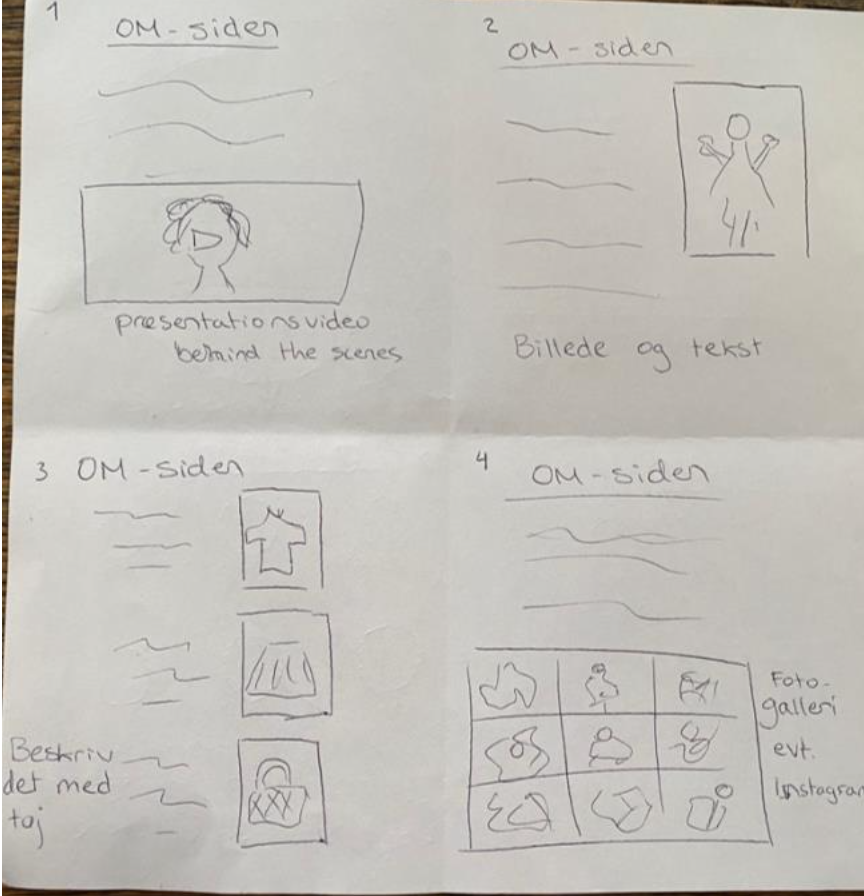 1
OM-siden
præsentationsvideo
behind the scenes
2
OM-siden
Billede og tekst
3 OM-siden
Beskriv
det med
tøj
4
OM-siden
Foto-
galleri
evt.
Instagram